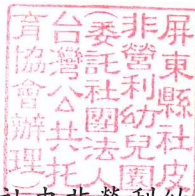 屏東縣社皮
非營利幼兒園
(委託社團法人
台灣公共托
育協會辦理)